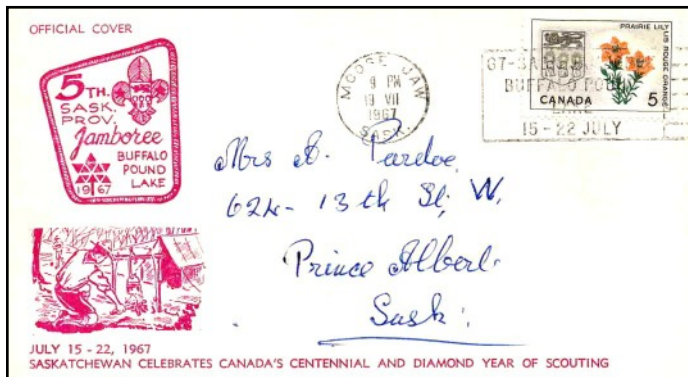 OFFICIAL COVER
5TH.
SASK.
PROV.
Jamboree
BUFFALO
POUND
LAKE
1967
MOOSE JAW
9 PM
19 VII
1967
SASK.
BUFFALO POUND
LAKE
15 - 22 JULY
PRAIRIE LILY
LIS ROUGE ORANGÉ
CANADA 5
Mrs
624 - 13th St, W,
Prince Albert.
Sask.
JULY 15 - 22, 1967
SASKATCHEWAN CELEBRATES CANADA'S CENTENNIAL AND DIAMOND YEAR OF SCOUTING